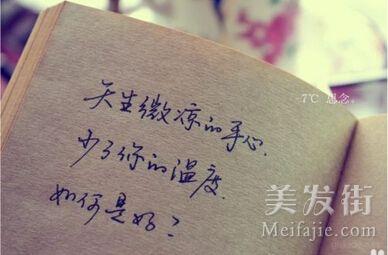 天生微凉的手心.
7℃ 思念。
少了你的温度.
如何是好?
美发街
Meifajie.com